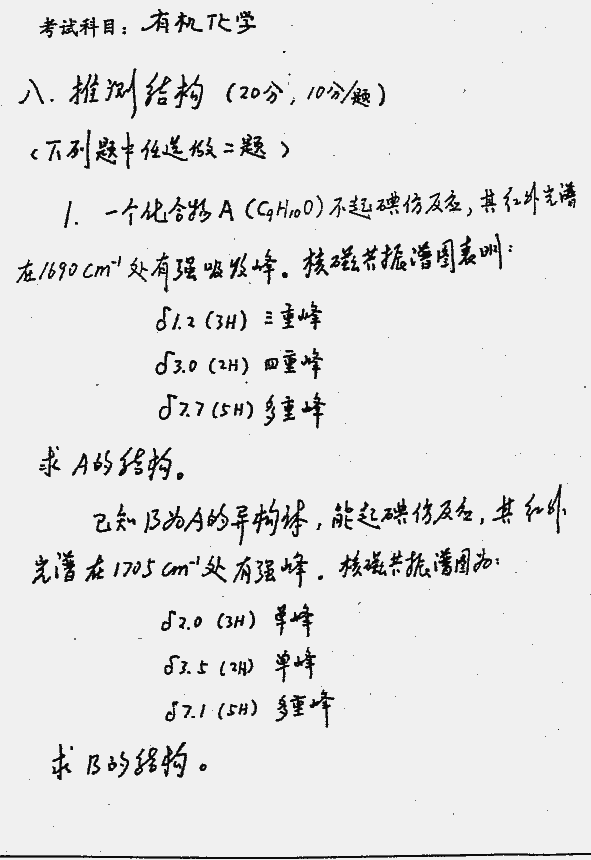 考试科目：有机化学
八．推测结构（20分，10分/题）
（下列题中任选做二题）
1. 一个化合物A（C₉H₁₀O）不起碘仿反应，其红外光谱
在1690cm⁻¹处有强吸收峰。核磁共振谱图表明：
δ1.2（3H）三重峰
δ3.0（2H）四重峰
δ7.7（5H）多重峰
求A的结构。
已知B为A的异构体，能起碘仿反应，其红外
光谱在1705cm⁻¹处有强峰．核磁共振谱图为：
δ2.0（3H）单峰
δ3.5（2H）单峰
δ7.1（5H）多重峰
求B的结构。